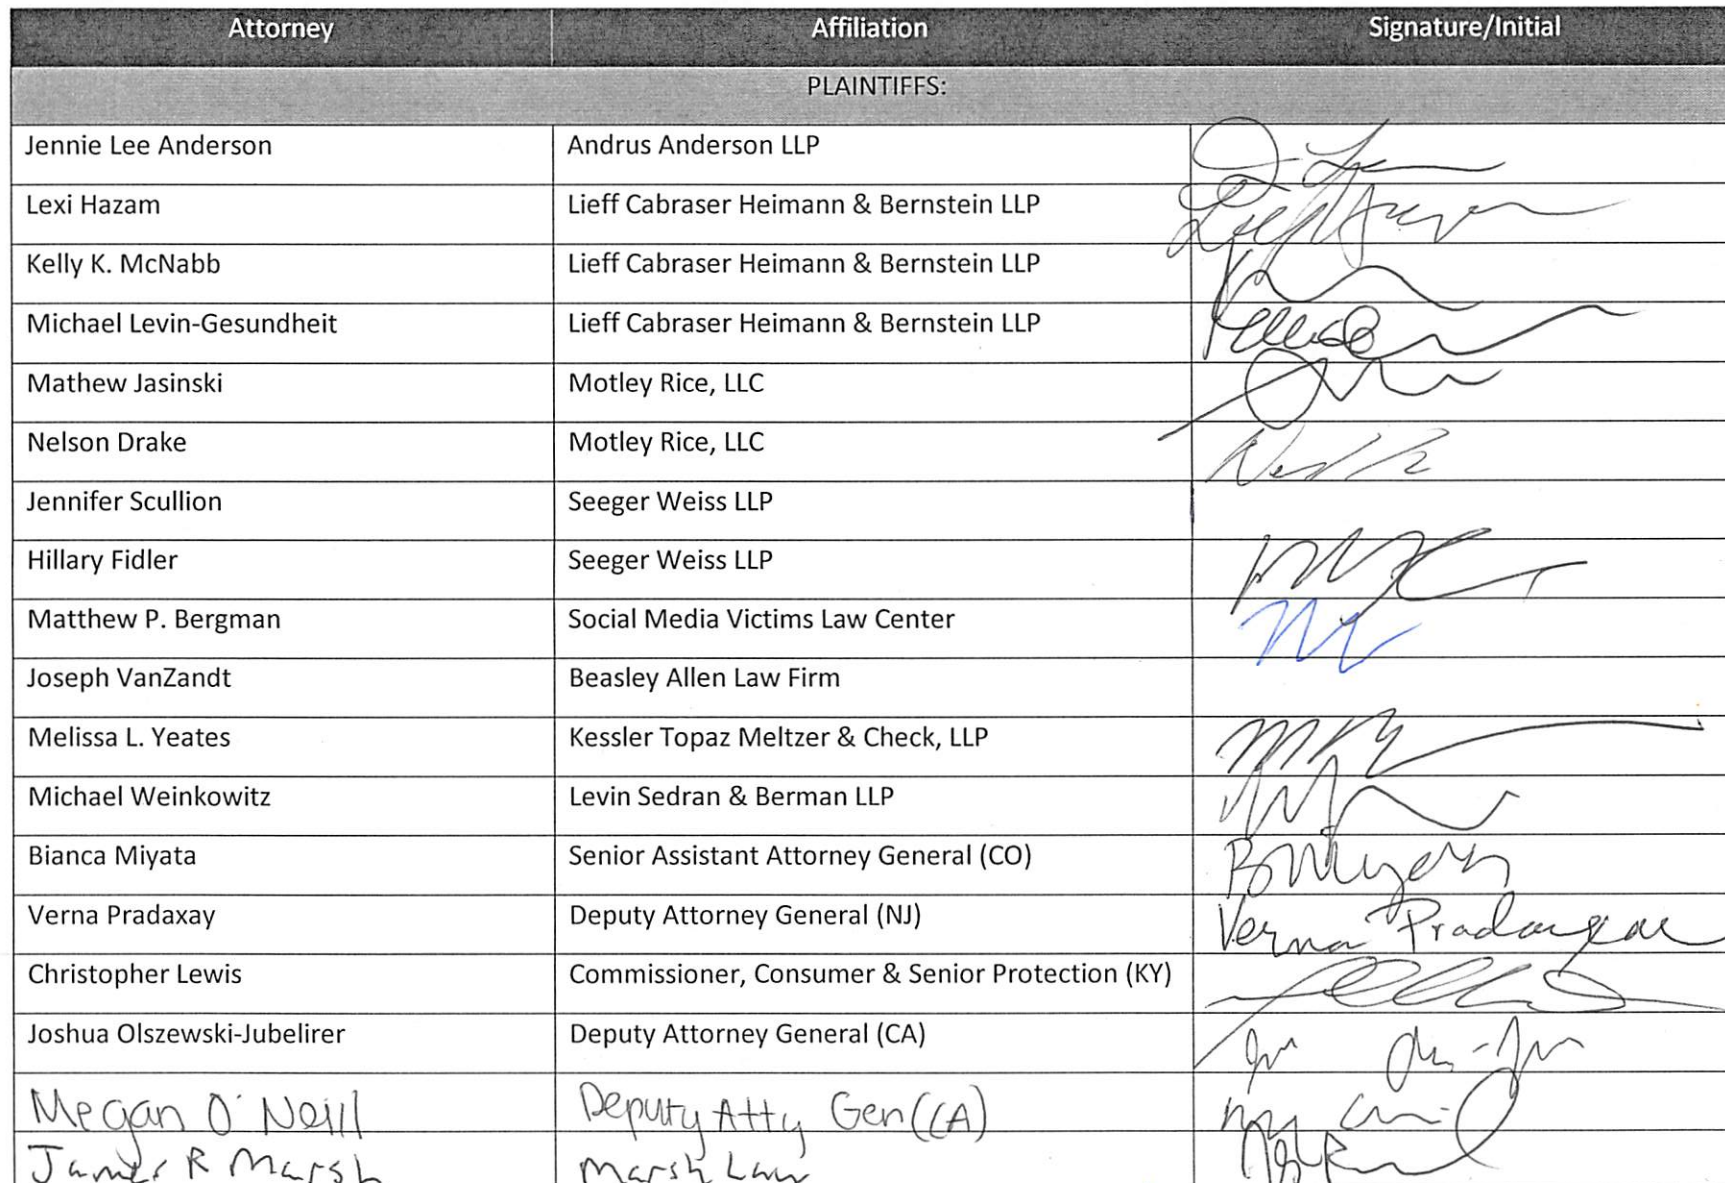 Attorney Affiliation Signature/Initial
PLAINTIFFS:
Jennie Lee Anderson Andrus Anderson LLP
Lexi Hazam Lieff Cabraser Heimann & Bernstein LLP
Kelly K. McNabb Lieff Cabraser Heimann & Bernstein LLP
Michael Levin-Gesundheit Lieff Cabraser Heimann & Bernstein LLP
Mathew Jasinski Motley Rice, LLC
Nelson Drake Motley Rice, LLC
Jennifer Scullion Seeger Weiss LLP
Hillary Fidler Seeger Weiss LLP
Matthew P. Bergman Social Media Victims Law Center
Joseph VanZandt Beasley Allen Law Firm
Melissa L. Yeates Kessler Topaz Meltzer & Check, LLP
Michael Weinkowitz Levin Sedran & Berman LLP
Bianca Miyata Senior Assistant Attorney General (CO)
Verna Pradaxay Deputy Attorney General (NJ) Verna Pradaxay
Christopher Lewis Commissioner, Consumer & Senior Protection (KY)
Joshua Olszewski-Jubelirer Deputy Attorney General (CA)
Megan O'Neill Deputy Atty Gen (CA)
James R Marsh Marsh Law